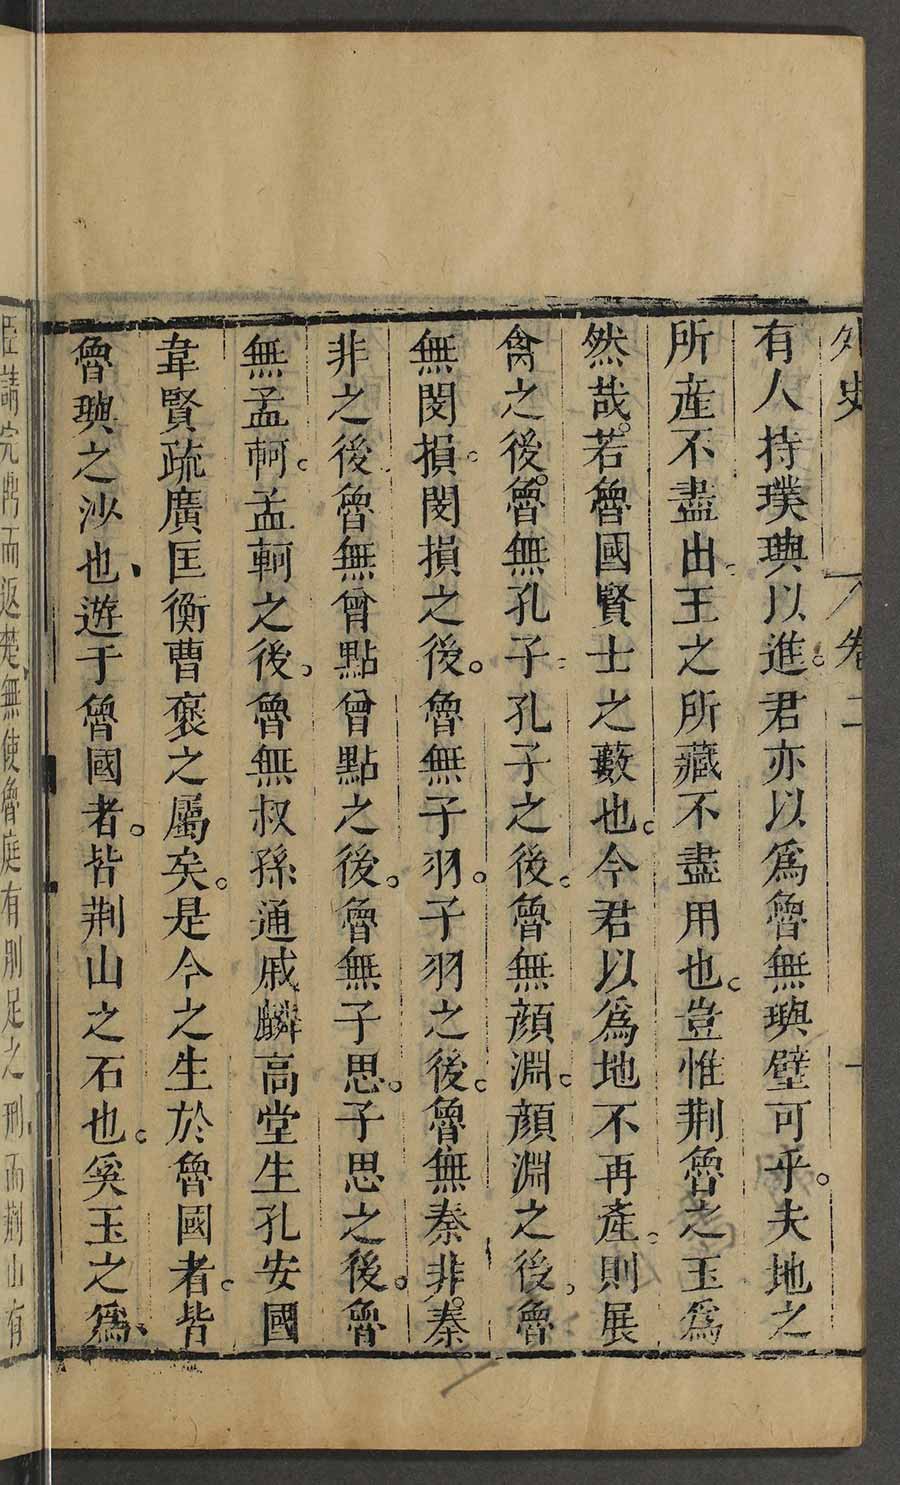 外史 卷二
有人持璞璵以進。君亦以爲魯無璵璧可乎。夫地之
所産不盡出。王之所藏不盡用也。豈惟荆魯之玉爲
然哉。若魯國賢士之藪也。今君以爲地不再產。則展
禽之後。魯無孔子。孔子之後。魯無顔淵。顔淵之後。魯
無閔損。閔損之後。魯無子羽。子羽之後。魯無秦非。秦
非之後。魯無曾點。曾點之後。魯無子思。子思之後。魯
無孟軻。孟軻之後。魯無叔孫通戚麟高堂生孔安國
韋賢疏廣匡衡曹褒之屬矣。是今之生於魯國者。皆
魯璵之沙也、遊于魯國者。皆荆山之石也。奚玉之爲、
臣請完鼎而返楚。無使魯庭有刖足之刑、而荆山有